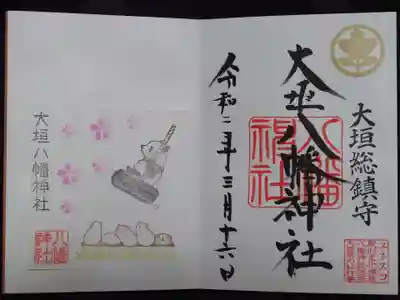 大垣総鎮守
ユネスコ
大垣八幡神社
八幡
神社
令和二年三月十六日
大垣八幡神社
八幡
神社